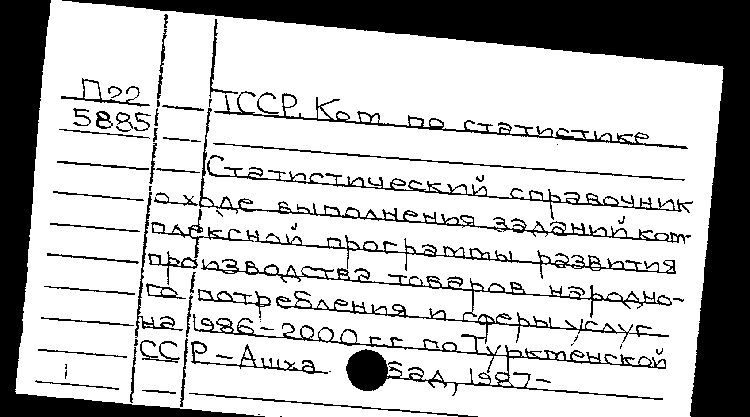 П22
5885
ТССР. Ком. по статистике
Статистический справочник
о ходе выполнения заданий ком
плексной программы развития
производства товаров народно-
го потребления и сферы услуг
на 1986-2000 г.г. по Туркменской
ССР - Ашха бад, 1987-
1